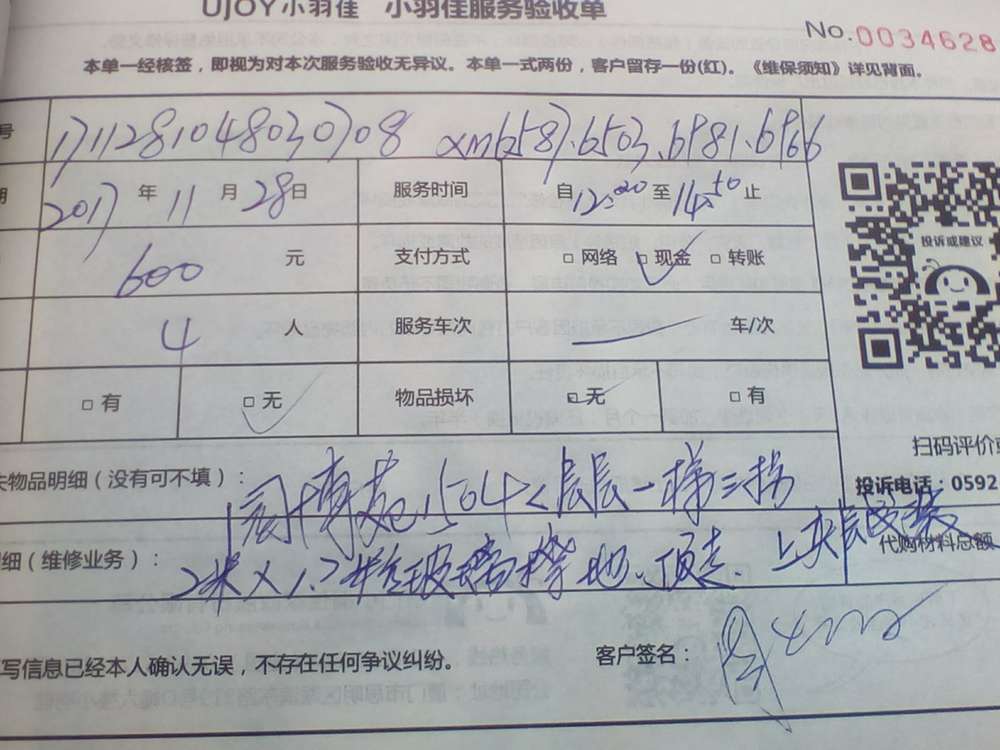 UJOY小羽佳 小羽佳服务验收单
No.0034628
本单一经核签，即视为对本次服务验收无异议。本单一式两份，客户留存一份(红)。《维保须知》详见背面。
号 1711281048030708 xm6587.6503.6981.6966
期 2017 年 11 月 28 日 服务时间 自 12:20 至 14:50 止
600 元 支付方式 □ 网络 □ 现金 □ 转账
4 人 服务车次 — 车/次
□ 有 □ 无 物品损坏 □ 无 □ 有
投诉或建议
扫码评价或
投诉电话：0592
失物品明细（没有可不填）： 博苑1504 层长一梯三拐
明细（维修业务）： 2米×1.2米 玻璃
代购材料总额
写信息已经本人确认无误，不存在任何争议纠纷。 客户签名：